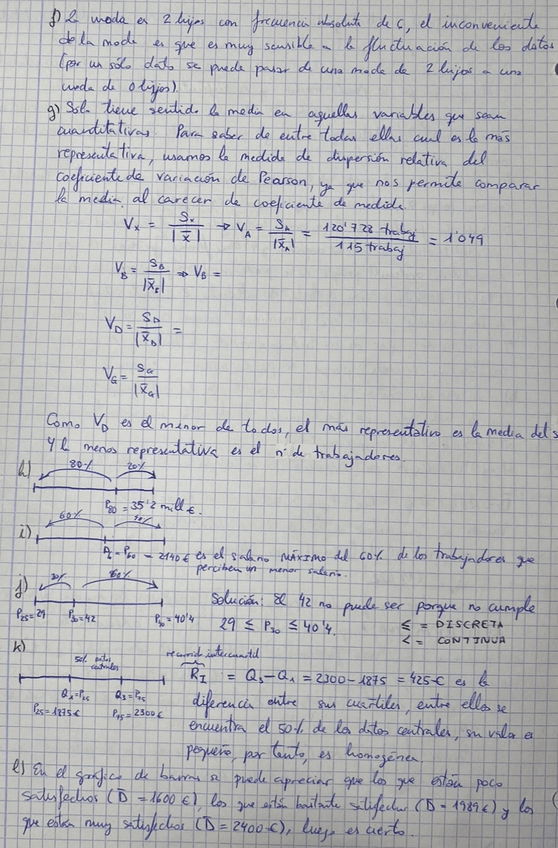 f) La moda es 2 hijos con frecuencia absoluta de 6, el inconveniente
de la moda es que es muy sensible a la fluctuación de los datos
(por un sólo dato se puede pasar de una moda de 2 hijos a una
moda de 0 hijos).
g) Solo tiene sentido la media en aquellas variables que sean
cuantitativas. Para saber de entre todas ellas cual es la más
representativa, usamos la medida de dispersión relativa del
coeficiente de variación de Pearson, ya que nos permite comparar
la media al carecer de coeficiente de medida.
Vx = Sx / |x̄| → VA = SA / |x̄A| = 120'722 trabaj / 115 trabaj = 1'049
VB = SB / |x̄B| ⇒ VB =
VD = SD / |x̄D| =
VG = SG / |x̄G|
Como VD es el menor de todos, el más representativo es la media del s
y la menos representativa es el nº de trabajadores.
h) 80% 20%
P80 = 35'2 mill €.
i) 60% 40%
= P60 = 2140 € es el salario MÁXIMO del 60% de los trabajadores que
perciben un menor salario.
j)
P25 = 29 P30 = 42 = 40'4
Solución: El 42 no puede ser porque no cumple
29 ≤ P30 ≤ 40'4.
≤ = DISCRETA
< = CONTINUA
k) 50% datos centrales
Q1 = P25 Q3 = P75
P25 = 1875 € P75 = 2300 €
recorrido intercuartil
RI = Q3 - Q1 = 2300 - 1875 = 425 € es la
diferencia entre sus cuartiles, entre ellos se
encuentra el 50% de los datos centrales, su valor es
pequeño, por tanto, es homogénea.
l) En el gráfico de barras se puede apreciar que los que están poco
satisfechos (D̄ = 1600 €), los que están bastante satisfechos (D̄ = 1989 €) y los
que están muy satisfechos (D̄ = 2400 €), luego es cierto.